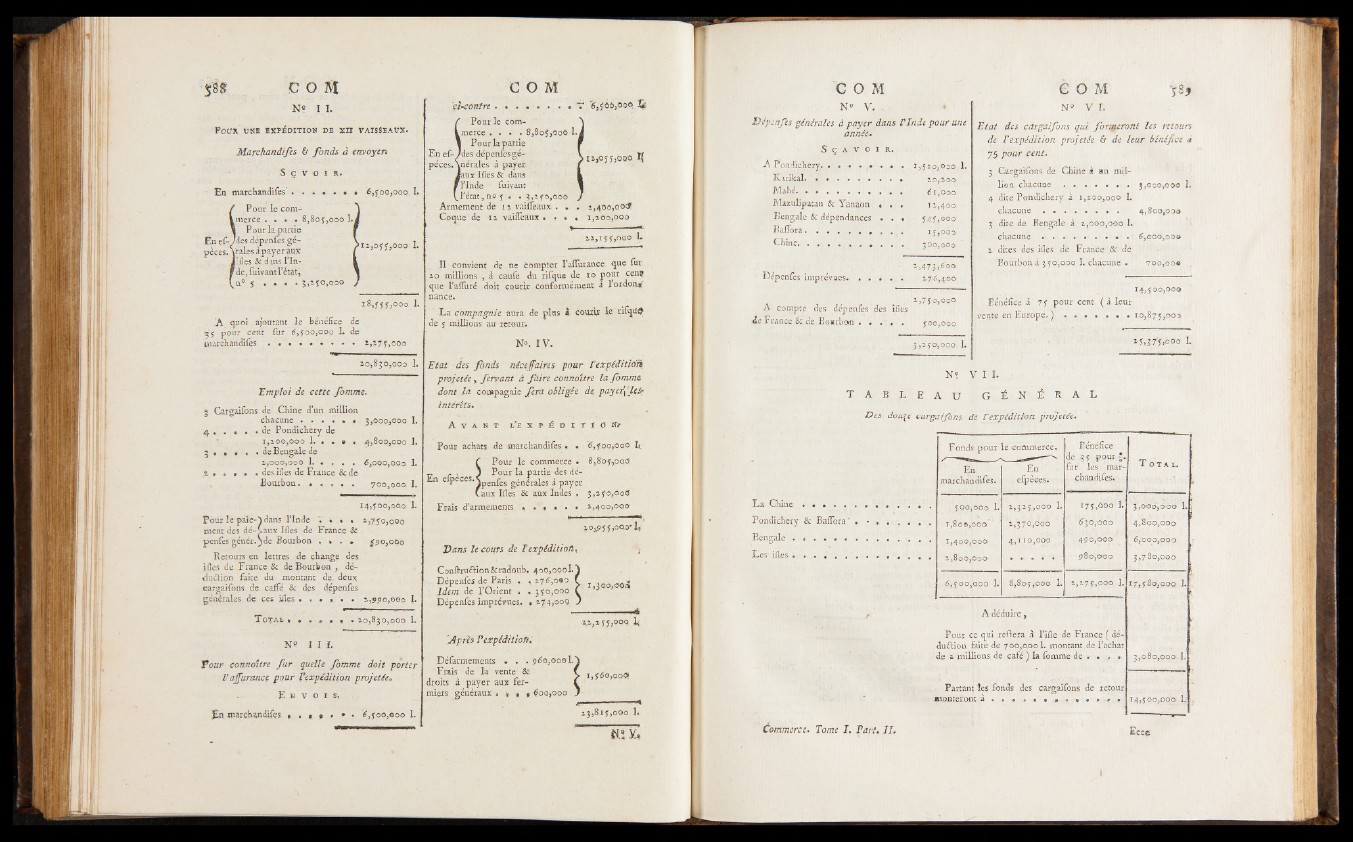 588 C O M
N° I I.
POUR UNE EXPÉDITION DE XII VAISSEAUX.
Marchandises & fonds à envoyer.
S Ç V O I R.
En marchandises . . . . . . . 6,500,000 l.
Pour le com-
merce . . . . 8,805,000 l.
Pour la partie
En es- des dépenses gé-
péces. rales à payer aux
isles & dans l'In-
de, suivant l'état,
n° 5 . . . . 3,250,000
12,055,000 l.
18,555,000 l.
A quoi ajoutant le bénéfice de
35 pour cent sur 6,500,000 l. de
marchandises . . . . . . . . . 2,275,000
20,830,000 l.
Emploi de cette somme.
3 Cargaisons de Chine d'un million
chacune . . . . . . 3,000,000 l.
4 . . . . . de Pondichery de
1,200,000 l. . . . . 4,800,000 l.
3 . . . . . de Bengale de
2,000,000 l. . . . . 6,000,000 l.
2 . . . . . des isles de France & de
Bourbon . . . . . . 700,000 l.
14,500,000 l.
Pour le paie- dans l'Inde . . . . 2,750,000
ment des dé- aux Isles de France &
penses génér. de Bourbon . . . . 500,000
Retours en lettres de change des
isles de France & de Bourbon , dé-
duction faite du montant de deux
cargaisons de caffé & des dépenses
générales de ces isles . . . . . . 2,990,000 l.
TOTAL . . . . . . . 20,830,000 l.
N° I I I.
Pour connoître sur quelle somme doit porter
l'assurance pour l'expédition projetée.
E N V O I S.
En marchandises . . . . . . . 6,500,000 l.
C O M
ci-contre . . . . . . . . . 6,500,000 l.
Pour le com-
merce . . . . 8,805,000 l.
Pour la partie
En es- des dépenses gé-
péces. nérales à payer
aux Isles & dans
l'Inde suivant
l'état, n° 5 . . 3,250,000
12,055,000 l.
Armement de 12 vaisseaux . . . 2,400,000
Coque de 12 vaisseaux . . . . 1,200,000
22,155,000 l.
Il convient de ne compter l'assurance que sur
20 millions , à cause du risque de 10 pour cent
que l'assuré doit courir conformément à l'ordon-
nance.
La compagnie aura de plus à courir le risque
de 5 millions au retour.
N°. IV.
Etat des fonds nécessaires pour l'expédition
projetée, servant à faire connoître la somme
dont la compagnie sera obligée de payer les
intérêts.
A V A N T L'E X P É D I T I O N.
Pour achats de marchandises . . 6,500,000 l.
Pour le commerce . 8,805,000
Pour la partie des dé-
En espèces. penses générales à payer
aux Isles & aux Indes . 3,250,000
Frais d'armements . . . . . . 2,400,000
20,955,000 l.
Dans le cours de l'expédition.
Construction & radoub. 400,000 l.
Dépenses de Paris . . 276,000
Idem de l'Orient . . 350,000
Dépenses imprévues. . 274,000
1,300,000
22,255,000 l.
Après l'expédition.
Désarmements . . . 960,000 l.
Frais de la vente &
droits à payer aux fer-
miers généraux . . . . 600,000
1,560,000
23,815,000 l.
N° V.
C O M
N° V.
Dépenses générales à payer dans l'Inde pour une
année.
S Ç A V O I R.
A Pondichery . . . . . . . . . 1,510,000 l.
Karikal . . . . . . . . . . 20,200
Mahé . . . . . . . . . . . 61,000
Mazulipatan & Yanaon . . . 12,400
Bengale & dépendances . . . 555,000
Bassora . . . . . . . . . . 15,000
Chine . . . . . . . . . . . 300,000
2,473,600
Dépenses imprévues . . . . . . 276,400
2,750,000
A compte des dépenses des isles
de France & de Bourbon . . . . . 500,000
3,250,000 l.
C O M 589
N° V I.
Etat des cargaisons qui formeront les retours
de l'expédition projetée & de leur bénéfice à
75 pour cent.
3 Cargaisons de Chine à un mil-
lion chacune . . . . . . . 3,000,000 l.
4 dite Pondichery à 1,200,000 l.
chacune . . . . . . . . 4,800,000
3 dite de Bengale à 2,000,000 l.
chacune . . . . . . . . . 6,000,000
2 dites des isles de France & de
Bourbon à 350,000 l. chacune . 700,000
14,500,000
Bénéfice à 75 pour cent (à leur
vente en Europe.) . . . . . . . 10,875,000
25,375,000 l.
N° V I I.
T A B L E A U G É N É R A L
Des douze cargaisons de l'expédition projetée.
Fonds pour le commerce. Bénéfice de 35 pour % sur les mar- chandises. TOTAL.
En marchandises. En espéces.
La Chine . . . . . . . . . . . . . 500,000 l. 2,325,000 l. 175,000 l. 3,000,000 l.
Pondichery & Bassora . . . . . . . . 1,800,000 2,370,000 630,000 4,800,000
Bengale . . . . . . . . . . . . . 1,400,000 4,110,000 490,000 6,000,000
Les isles . . . . . . . . . . . . . 2,800,000 . . . . . 980,000 3,780,000
6,500,000 l. 8,805,000 l. 2,275,000 l. 17,580,000 l.
A déduire,
Pour ce qui restera à l'isle de France ( dé-
duction faite de 700,000 l. montant de l'achat
de 2 millions de café ) la somme de . . . . 3,080,000 l.
Partant les fonds des cargaisons de retour
monteront à . . . . . . . . . . . . . . 14,500,000 l.
Commerce. Tome I. Part. II. Eeee